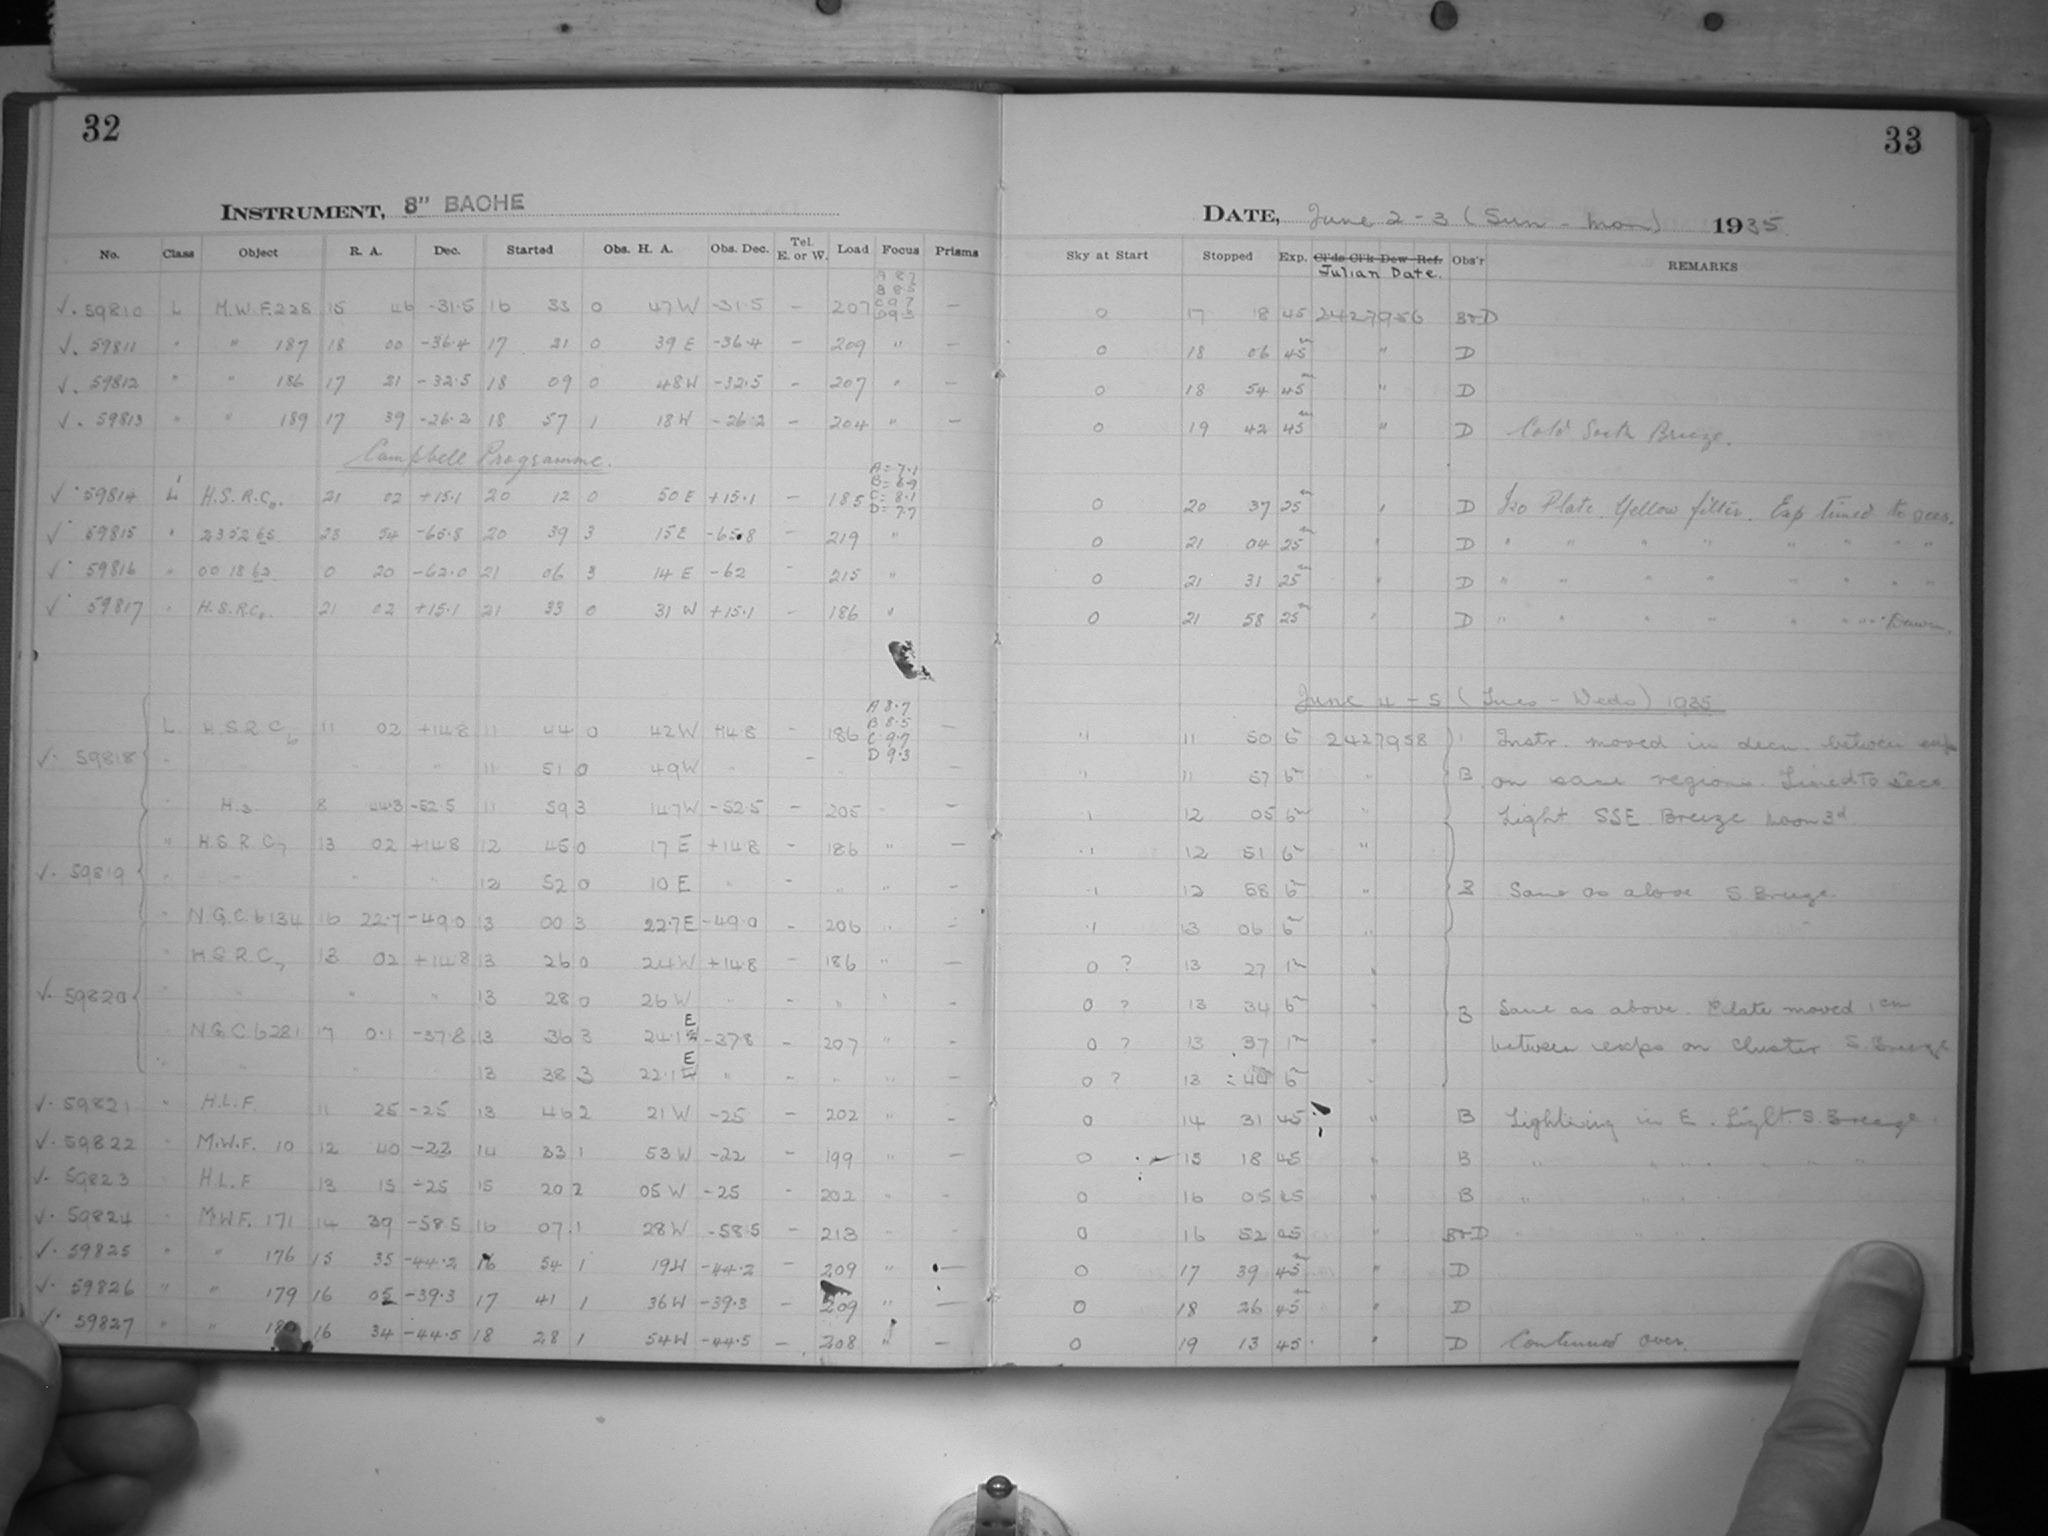 32
INSTRUMENT, 8" BACHE
No. Class Object R. A. Dec. Started Obs. H. A. Obs. Dec. Tel. E. or W. Load Focus Prisms
A 8.7
B 8.5
C 9.7
D 9.3
✓. 59810 L M.W.F. 228 15 46 -31.5 16 33 0 47 W -31.5 - 207 -
✓. 59811 " " 187 18 00 -36.4 17 21 0 39 E -36.4 - 209 " -
✓. 59812 " " 186 17 21 -32.5 18 09 0 48 W -32.5 - 207 " -
✓. 59813 " " 189 17 39 -26.2 18 57 1 18 W -26.2 - 204 " -
Campbell Programme.
A = 7.1
B = 6.9
C = 8.1
D = 7.7
✓. 59814 L H.S.R.C. 21 02 +15.1 20 12 0 50 E +15.1 - 185
✓. 59815 " 235265 23 54 -65.8 20 39 3 15 E -65.8 - 219 "
✓. 59816 " 001862 0 20 -62.0 21 06 3 14 E -62 - 215 "
✓. 59817 " H.S.R.C. 21 02 +15.1 21 33 0 31 W +15.1 - 186 "
A 8.7
B 8.5
C 9.7
D 9.3
L H.S.R.C6 11 02 +14.8 11 44 0 42 W +14.8 - 186 -
✓. 59818 " " " " 11 51 0 49 W " - " -
" H.3. 8 44.3 -52.5 11 59 3 147 W -52.5 - 205 " -
" H.S.R.C7 13 02 +14.8 12 45 0 17 E +14.8 - 186 " -
✓. 59819 " " " " 12 52 0 10 E " - " " -
" N.G.C. 6134 16 22.7 -49.0 13 00 3 22.7 E -49.0 - 206 " -
" H.S.R.C7 13 02 +14.8 13 26 0 24 W +14.8 - 186 " -
✓. 59820 " " " " 13 28 0 26 W " - " " -
" N.G.C. 6281 17 0.1 -37.8 13 36 3 24.1 E -37.8 - 207 " -
" " " " 13 38 3 22.1 E " - " " -
✓. 59821 " H.L.F. 11 25 -25 13 46 2 21 W -25 - 202 " -
✓. 59822 " M.W.F. 10 12 40 -22 14 33 1 53 W -22 - 199 " -
✓. 59823 " H.L.F 13 15 -25 15 20 2 05 W -25 - 202 " -
✓. 59824 " M.W.F. 171 14 39 -58.5 16 07 1 28 W -58.5 - 213 " -
✓. 59825 " " 176 15 35 -44.2 16 54 1 19 W -44.2 - 209 " -
✓. 59826 " " 179 16 05 -39.3 17 41 1 36 W -39.3 - 209 " -
✓. 59827 " " 16 34 -44.5 18 28 1 54 W -44.5 - 208 " -
33
DATE, June 2 - 3 (Sun - Mon) 1935
Sky at Start Stopped Exp. Cl'ds Cl'k Dew Ref. Obs'r REMARKS
Julian Date.
0 17 18 45 2427956 B&D
0 18 06 45m " D
0 18 54 45m " D
0 19 42 45m " D Cold South Breeze.
0 20 37 25m " D Iso Plate. Yellow filter. Exp timed to secs.
0 21 04 25m " D " " " " " " " "
0 21 31 25m " D " " " " " " " "
0 21 58 25m " D " " " " " " " " Dawn.
June 4 - 5 (Tues - Weds) 1935
.1 11 50 6 2427958 Instr. moved in decn. between exp
.1 11 57 6m " B on same regions. Timed to secs
.1 12 05 6m " Light SSE Breeze Moon 3d.
.1 12 51 6m "
.1 12 58 6m " B Same as above S. Breeze.
.1 13 06 6m "
0 ? 13 27 1m "
0 ? 13 34 6m " B Same as above. Plate moved 1cm
0 ? 13 37 1m " between exps on cluster S. Breeze
0 ? 13 44 6m "
0 14 31 45 " B Lightning in E. Light S. Breeze.
0 15 18 45 " B " " " " " "
0 16 05 45 " B " " "
0 16 52 45 " B&D " " "
0 17 39 45m " D
0 18 26 45m " D
0 19 13 45 " D Continued over.